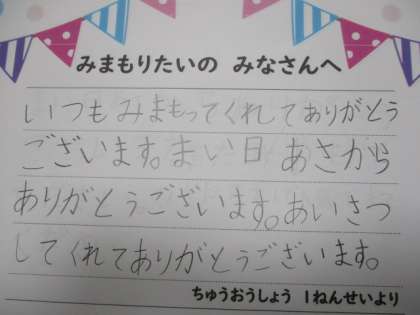 みまもりたいの みなさんへ
いつもみまもってくれてありがとう
ございます。まい日 あさから
ありがとうございます。あいさつ
してくれてありがとうございます。
ちゅうおうしょう 1ねんせいより